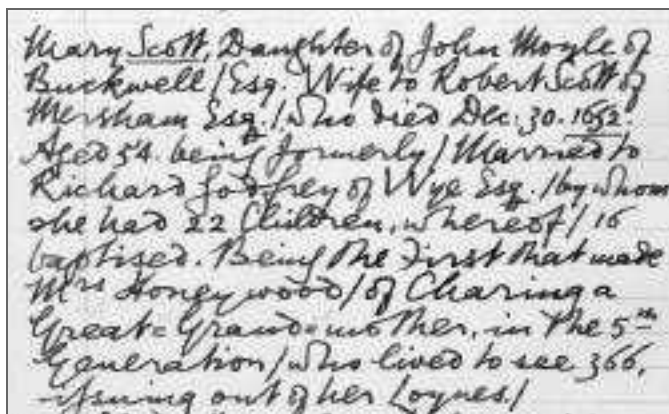 Mary Scott, Daughter of John Moyle of
Buckwell / Esq. Wife to Robert Scott of
Mersham Esq. / who died Dec. 30. 1652.
Aged 54. being formerly / Married to
Richard Godfrey of Wye Esq. / by whom
she had 22 Children, whereof / 16
baptised. Being the First that made
Mrs Honeywood / of Charing a
Great = Grand = mother, in the 5th
Generation / who lived to see 366,
issuing out of her Loynes. /